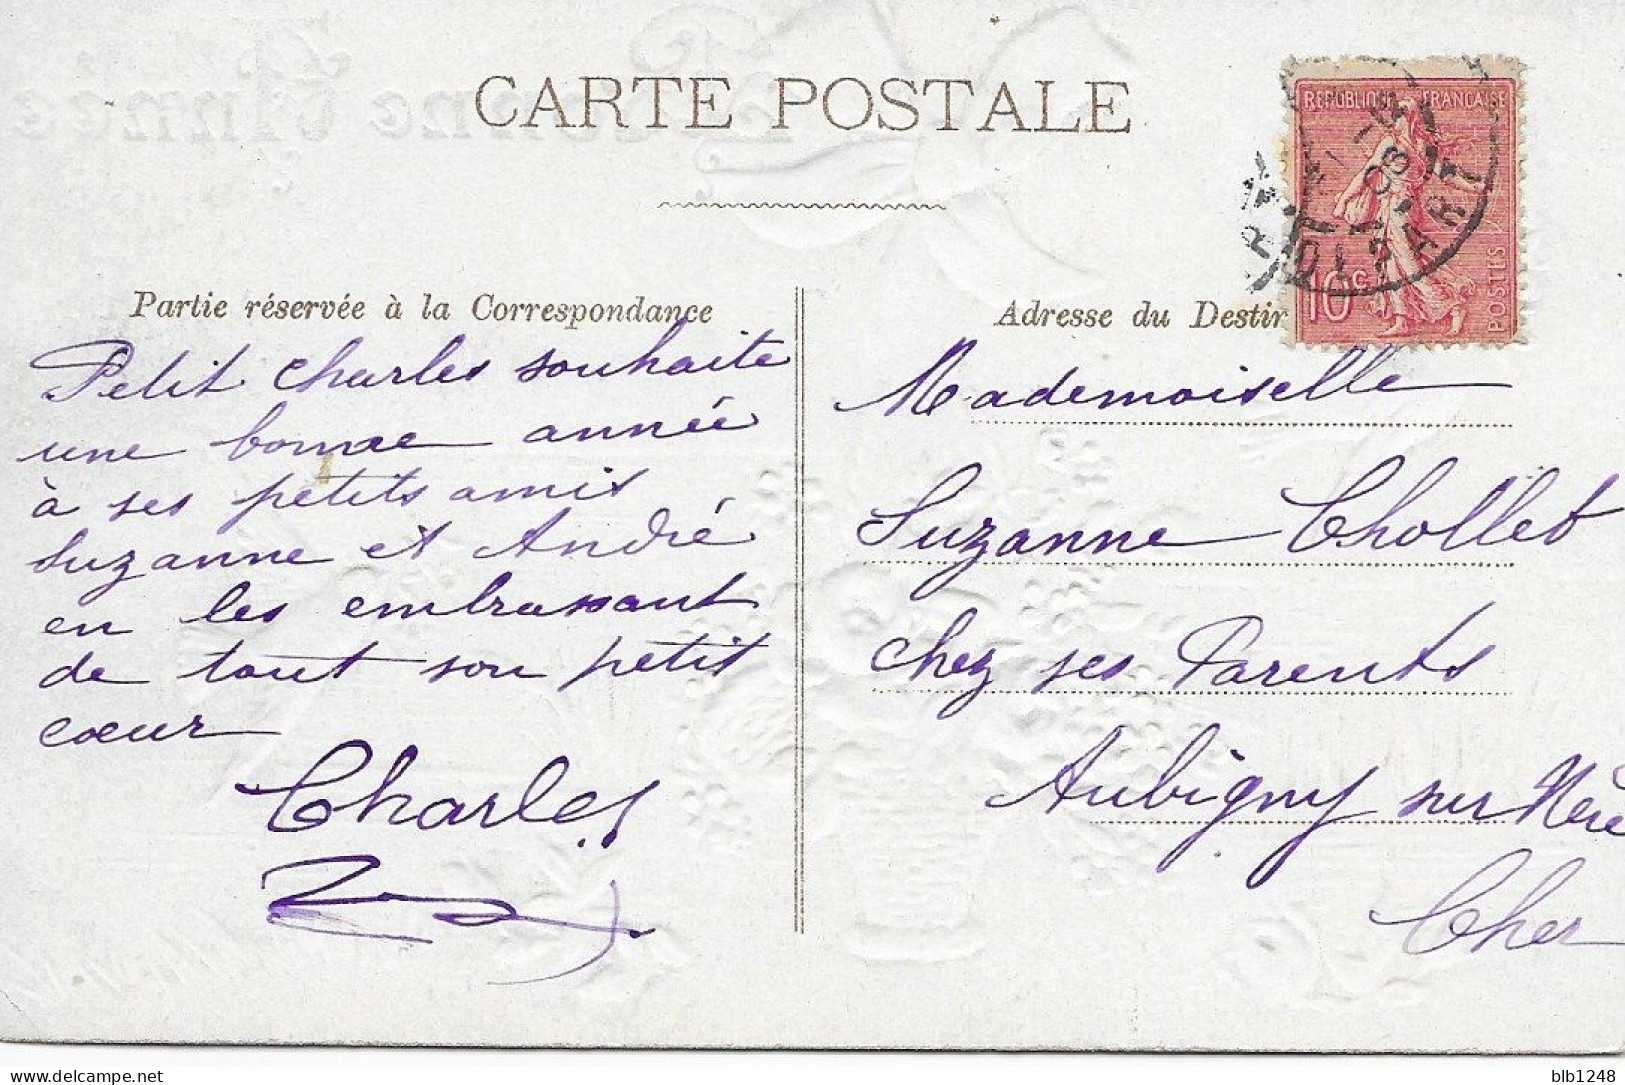 CARTE POSTALE
REPUBLIQUE FRANCAISE
10c
POSTES
DEPART
08
Partie réservée à la Correspondance
Petit Charles souhaite
une bonne année
à ses petits amis
Suzanne et André
en les embrassant
de tout son petit
cœur
Charles
Adresse du Destin
Mademoiselle
Suzanne Chollet
chez ses Parents
Aubigny sur Nère
Cher
Bonne Année
blb1248